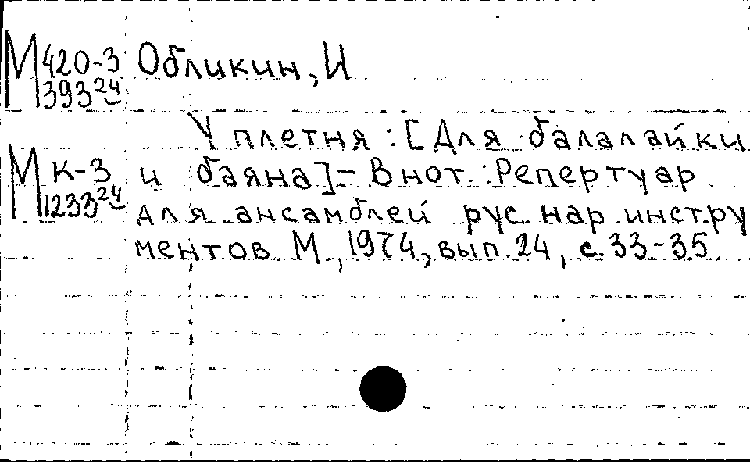 М 420-3 Обликин, И
393 24
У плетня : [Для балалайки
М К-3 и баяна] - В нот.: Репертуар
1233 24 для ансамблей рус. нар. инстру
ментов М., 1974, вып. 24, с. 33-35.